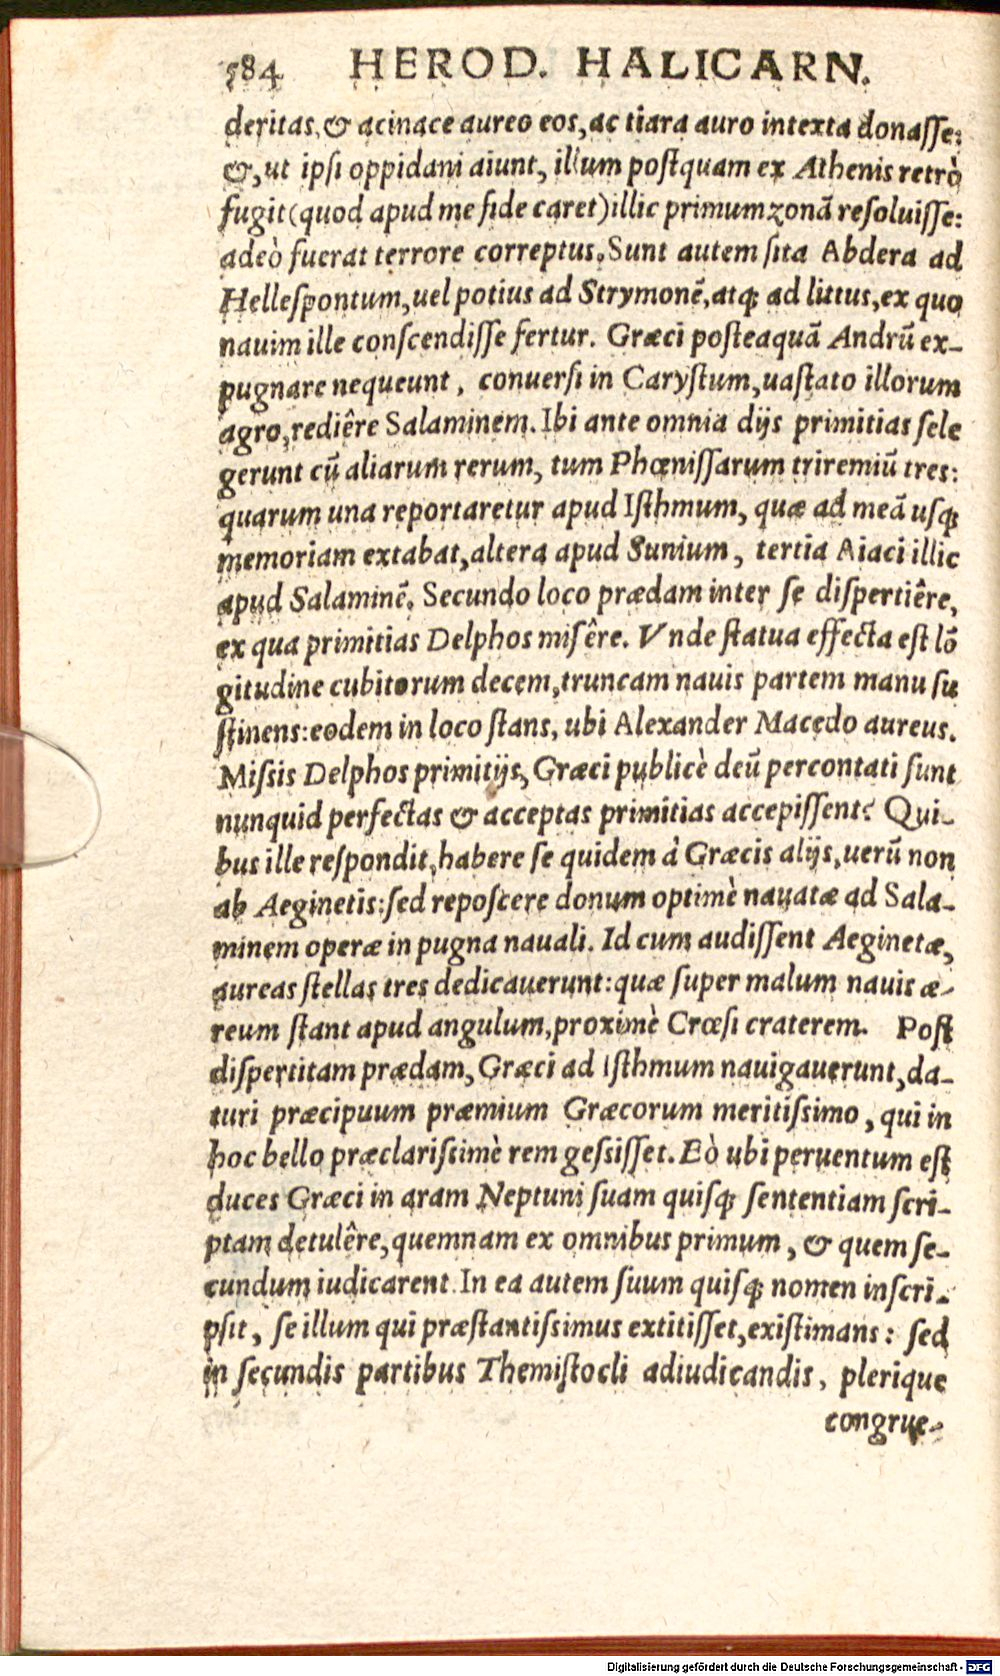 584 HEROD. HALICARN.
deritas, & acinace aureo eos, ac tiara auro intexta donaſſe:
&, ut ipſi oppidani aiunt, illum poſtquam ex Athenis retrò
fugit (quod apud me fide caret) illic primum zonã reſoluiſſe:
adeò fuerat terrore correptus. Sunt autem ſita Abdera ad
Helleſpontum, uel potius ad Strymonẽ, atq; ad littus, ex quo
nauim ille conſcendiſſe fertur. Græci poſteaquã Andrũ ex-
pugnare nequeunt, conuerſi in Caryſtum, uaſtato illorum
agro, rediêre Salaminem. Ibi ante omnia dijs primitias ſele
gerunt cũ aliarum rerum, tum Phœniſſarum triremiũ tres:
quarum una reportaretur apud Iſthmum, quæ ad meã uſq;
memoriam extabat, altera apud Sunium, tertia Aiaci illic
apud Salaminẽ. Secundo loco prædam inter ſe diſpertiêre,
ex qua primitias Delphos miſêre. Vnde ſtatua effecta eſt lõ
gitudine cubitorum decem, truncam nauis partem manu ſu
ſtinens: eodem in loco ſtans, ubi Alexander Macedo aureus.
Miſsis Delphos primitijs, Græci publicè deũ percontati ſunt
nunquid perfectas & acceptas primitias accepiſſent? Qui-
bus ille reſpondit, habere ſe quidem à Græcis alijs, uerũ non
ab Aeginetis: ſed repoſcere donum optimè nauatæ ad Sala-
minem operæ in pugna nauali. Id cum audiſſent Aeginetæ,
aureas ſtellas tres dedicauerunt: quæ ſuper malum nauis æ-
reum ſtant apud angulum, proximè Crœſi craterem. Poſt
diſpertitam prædam, Græci ad Iſthmum nauigauerunt, da-
turi præcipuum præmium Græcorum meritiſsimo, qui in
hoc bello præclariſsimè rem geſsiſſet. Eò ubi peruentum eſt
duces Græci in aram Neptuni ſuam quiſq; ſententiam ſcri-
ptam detulêre, quemnam ex omnibus primum, & quem ſe-
cundum iudicarent. In ea autem ſuum quiſq; nomen inſcri-
pſit, ſe illum qui præſtantiſsimus extitiſſet, exiſtimans: ſed
in ſecundis partibus Themiſtocli adiudicandis, plerique
congrue-
Digitalisierung gefördert durch die Deutsche Forschungsgemeinschaft - DFG